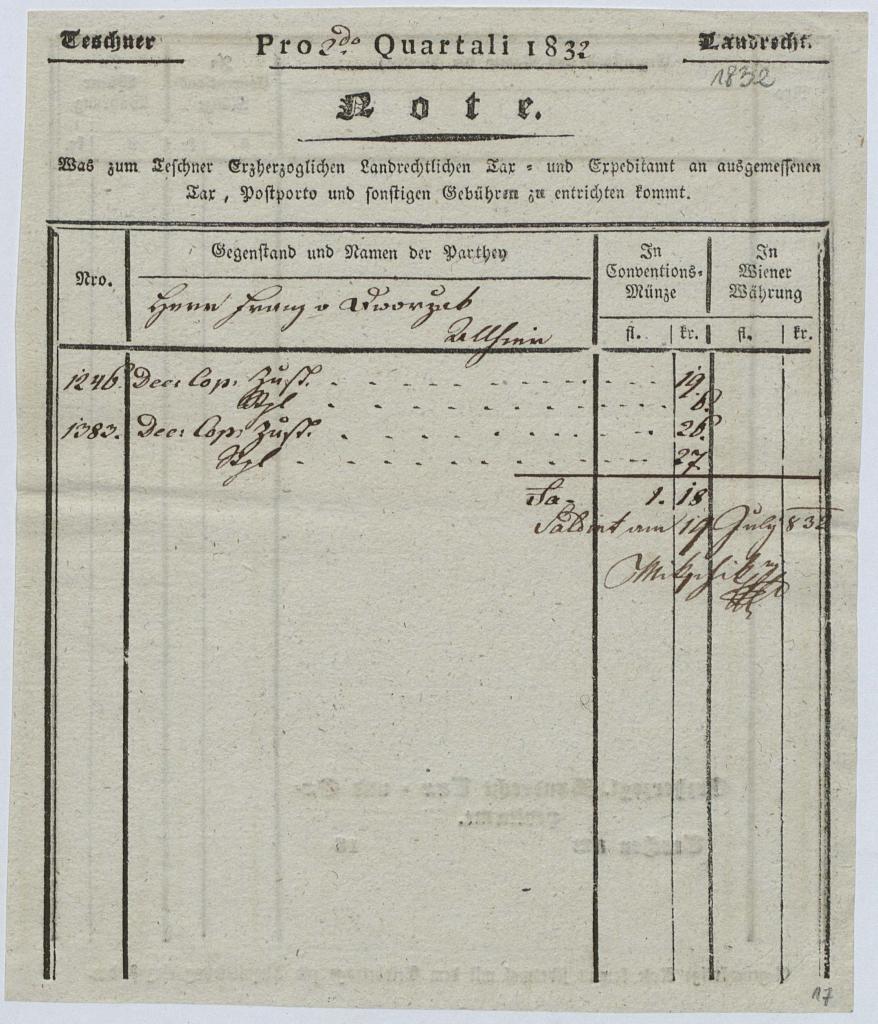 Teschner Pro 2do Quartali 1832 Landrecht.
1832
Note.
Was zum Teschner Erzherzoglichen Landrechtlichen Tax- und Expeditamt an ausgemessenen
Tax, Postporto und sonstigen Gebühren zu entrichten kommt.
Nro. Gegenstand und Namen der Parthey In Conventions-Münze In Wiener Währung
fl. kr. fl. kr.
Herr Franz v Dworzak
1246. Dec: Cop: Zust. 19.
Stpl 6.
1383. Dec: Cop: Zust. 26.
Stpl 27.
Sa. 1. 18
Saldirt am 19 July 832
17